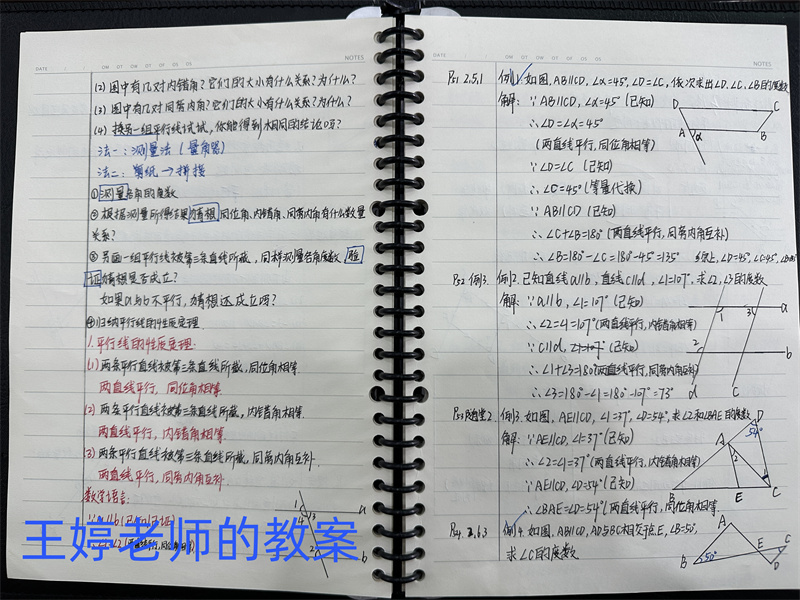 DATE
NOTES
(2) 图中有几对内错角？它们的大小有什么关系？为什么？
(3) 图中有几对同旁内角？它们的大小有什么关系？为什么？
(4) 换另一组平行线试试，你能得到相同的结论吗？
法一：测量法（量角器）
法二：剪纸→拼接
①测量各角的度数
②根据测量所得结果猜想同位角、内错角、同旁内角有什么数量
关系？
③另画一组平行线被第三条直线所截，同样测量各角度数，验
证猜想是否成立？
如果a与b不平行，猜想还成立吗？
④归纳平行线的性质定理
1.平行线的性质定理：
(1) 两条平行直线被第三条直线所截，同位角相等.
两直线平行，同位角相等.
(2) 两条平行直线被第三条直线所截，内错角相等.
两直线平行，内错角相等.
(3) 两条平行直线被第三条直线所截，同旁内角互补.
两直线平行，同旁内角互补.
数学语言：
∵a∥b(已知)
王婷老师的教案
1
3
4
2
a
b
NOTES
P51 2,5,1 例1.如图,AB∥CD,∠α=45°,∠D=∠C,依次求出∠D、∠C、∠B的度数
解：∵AB∥CD,∠α=45°(已知)
∴∠D=∠α=45°
(两直线平行,同位角相等)
∵∠D=∠C (已知)
∴∠C=45°(等量代换)
∵AB∥CD(已知)
∴∠C+∠B=180°(两直线平行,同旁内角互补)
∴∠B=180°-∠C=180°-45°=135° 综上,∠D=45°,∠C=45°,
D C
A α B
P52 例3. 例2.已知直线a∥b,直线c∥d,∠1=107°,求∠2,∠3的度数
解：∵a∥b,∠1=107°(已知)
∴∠2=∠1=107°(两直线平行,内错角相等)
∵c∥d, ∠1=107°(已知)
∴∠1+∠3=180°(两直线平行,同旁内角互补)
∴∠3=180°-∠1=180°-107°=73°
1 3 a
2 b
d c
P53随堂2. 例3.如图,AE∥CD,∠1=37°,∠D=54°,求∠2和∠BAE的度数
解：∵AE∥CD,∠1=37°(已知)
∴∠2=∠1=37°(两直线平行,内错角相等)
∵AE∥CD,∠D=54°(已知)
∴∠BAE=∠D=54°(两直线平行,同位角相等.
D
54°
A
2
B E C
P54. 2,6,3 例4.如图,AB∥CD,AD与BC相交于点E,∠B=50°,
求∠C的度数
A
E C
B 50° D